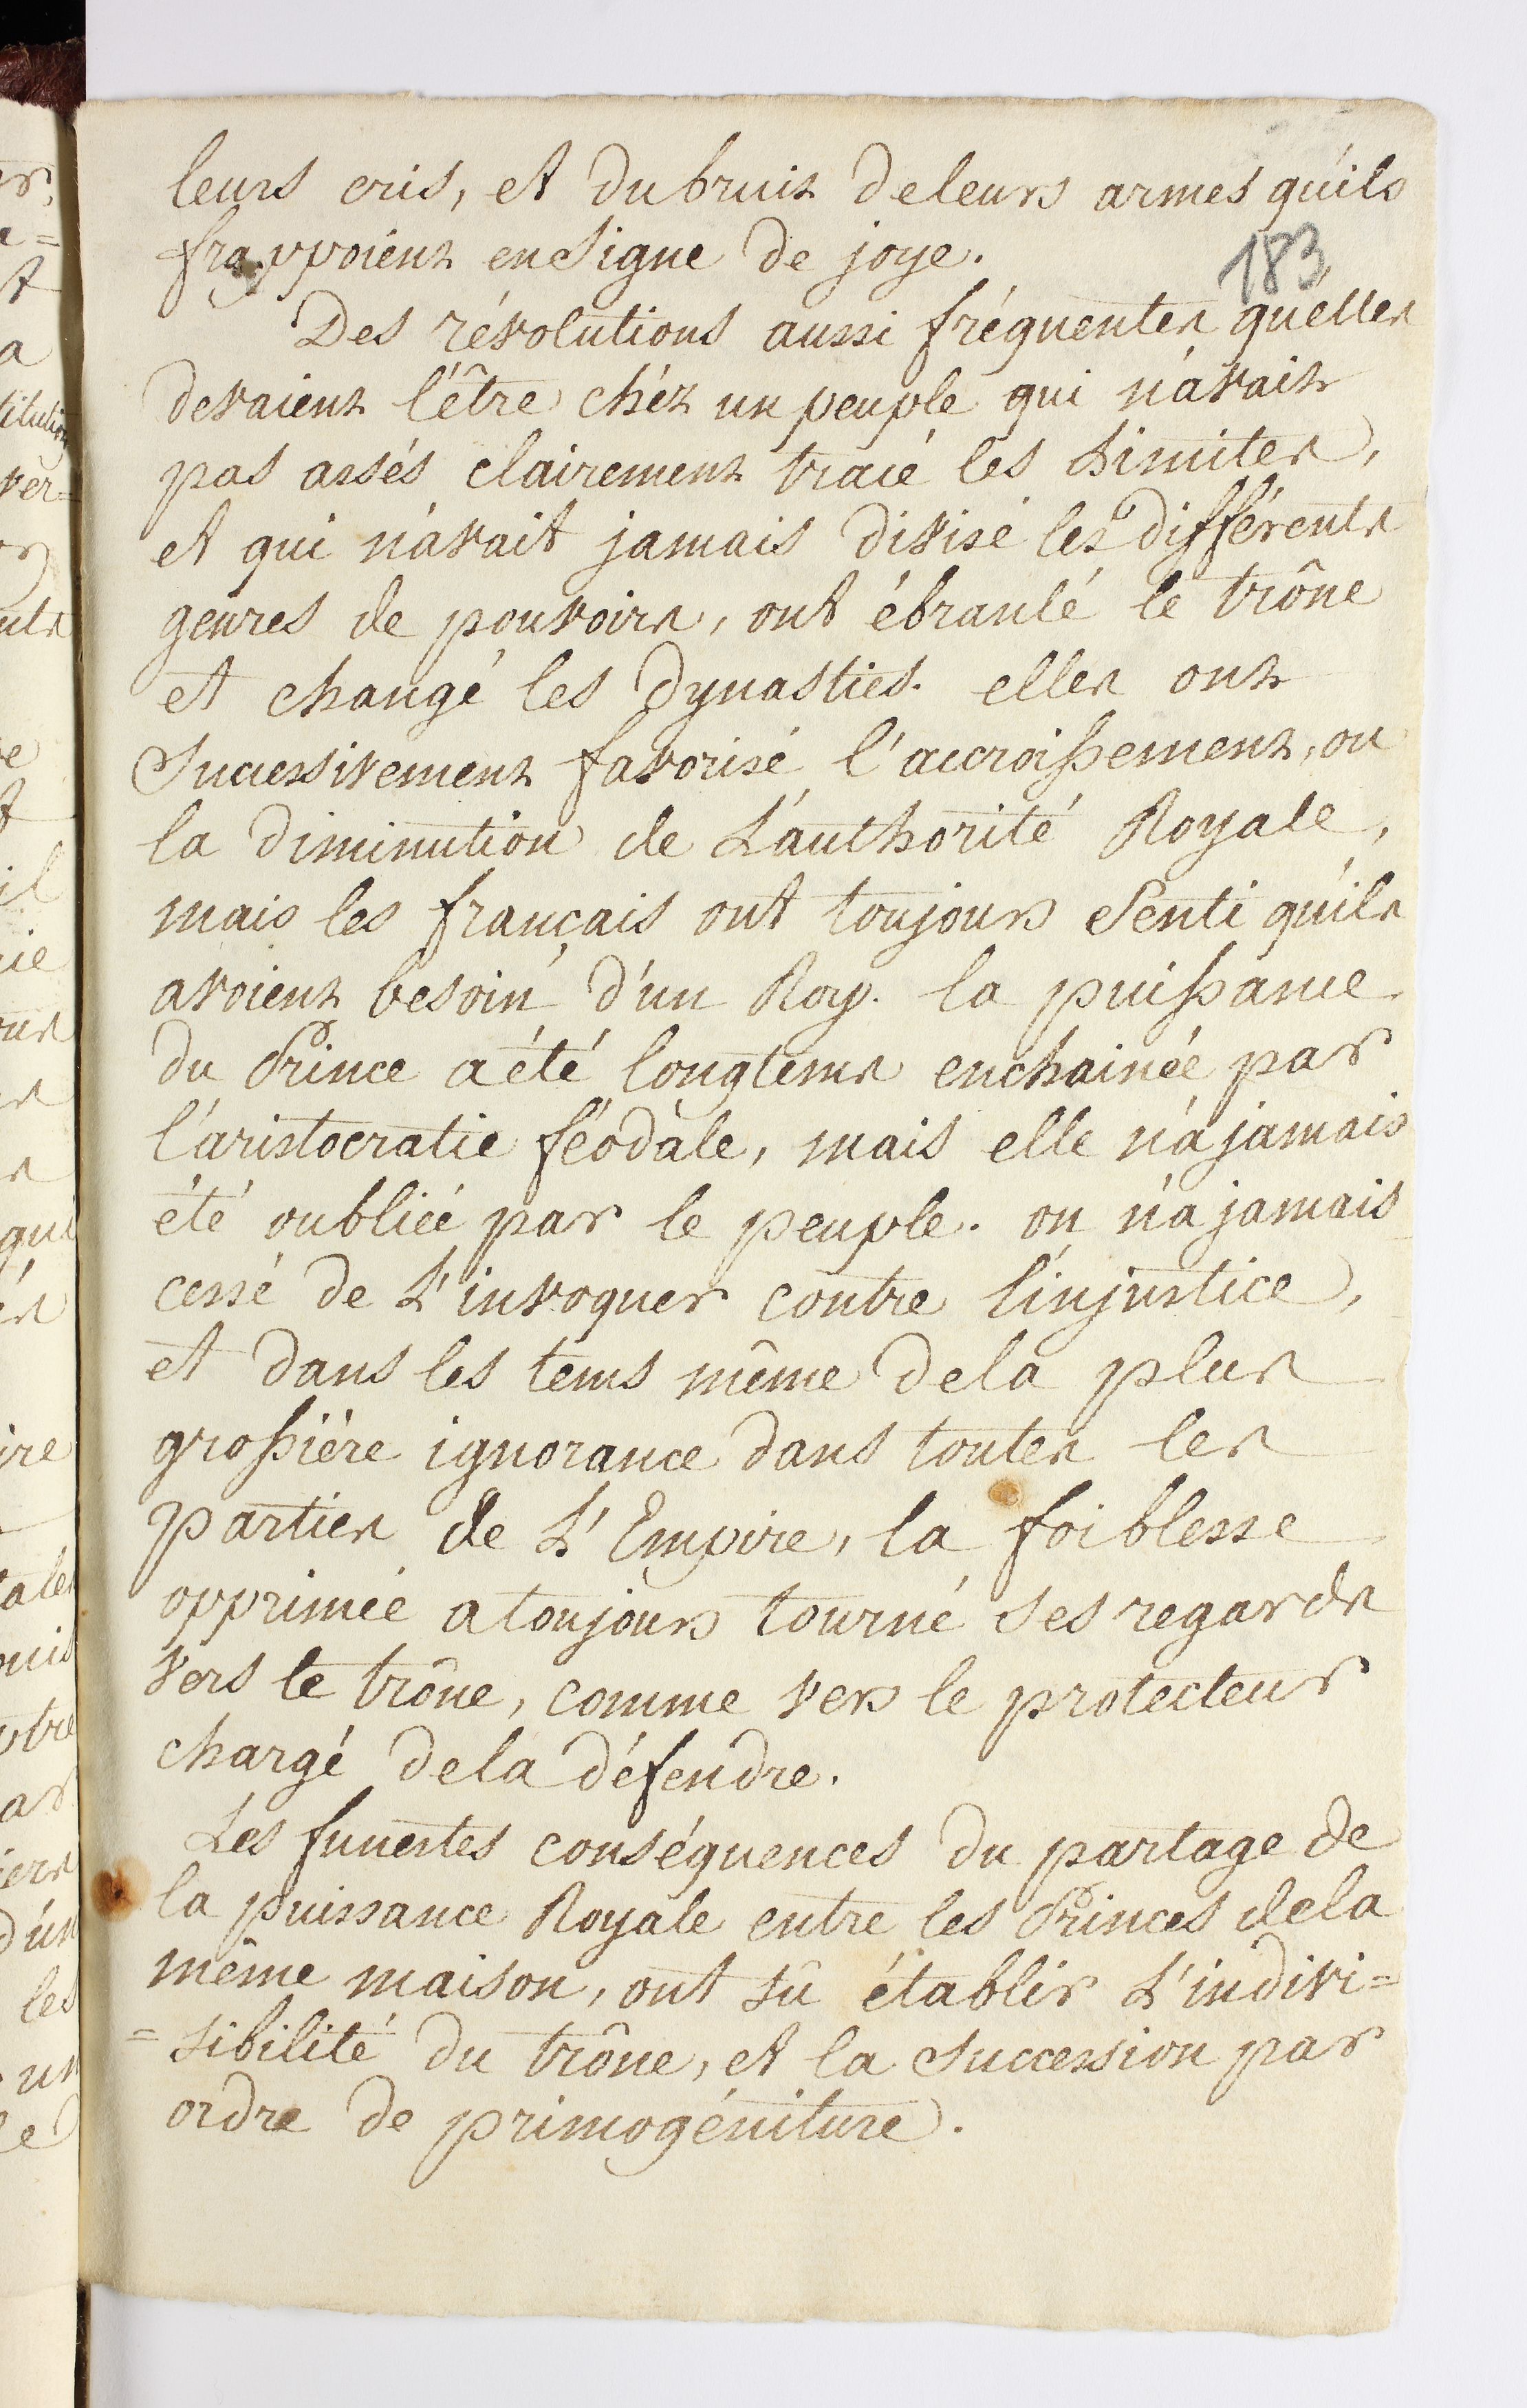 leurs cris, et du bruit de leurs armes qu'ils
frappoient en signe de joye.
183
Des révolutions aussi fréquentes qu'elles
devaient l'être chéz un peuple qui n'avait
pas assés clairement tracé les Limites,
et qui n'avait jamais divisé les différents
genres de pouvoirs, ont ébranlé le trône
et changé les dynasties. elles ont
Successivement favorisé l'accroissement, ou
la diminution de L'authorité Royale,
mais les français ont toujours Senti qu'ils
avoient besoin d'un Roy. la puissance
du Prince a été longtems enchainée par
l'aristocratie féodale, mais elle n'a jamais
été oubliée par le peuple. on n'a jamais
cessé de L'invoquer contre l'injustice,
et dans les tems même de la plus
grossière ignorance dans toutes les
parties de L'Empire, la foiblesse
opprimée a toujours tourné ses regards
vers le trône, comme vers le protecteur
chargé de la défendre.
Les funestes conséquences du partage de
la puissance Royale entre les Princes de la
même maison, ont sû établir L'indivi=
=sibilité du trône, et la succession par
ordre de primogéniture.